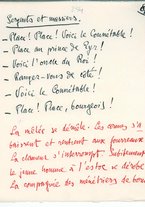 Sergents et massiers.
– Place! Place! Voici le Connétable!
– Place au prince de Tyr!
– Voici l'oncle du Roi!
– Rangez-vous de côté!
– Voici le Connétable!
– Place! Place, bourgeois!
La mêlée se démêle. Les armes s'a
baissent et rentrent aux fourreaux
La clameur s'interrompt subitement
le jeune homme à l'estoc se dérobe
La compagnie des ménétriers de bou